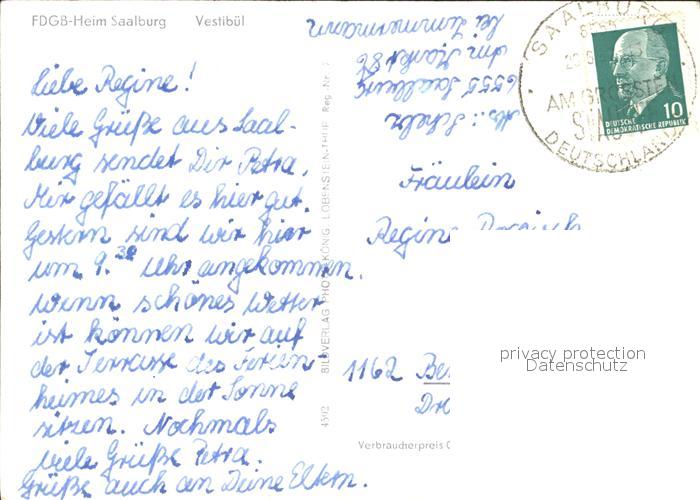 FDGB-Heim Saalburg Vestibül
Liebe Regine!
Viele Grüße aus Saal-
burg sendet Dir Petra.
Mir gefällt es hier gut.
Gestern sind wir hier
um 9.30 Uhr angekommen.
Wenn schönes Wetter
ist können wir auf
der Terrasse des Ferien
heimes in der Sonne
sitzen. Nochmals
viele Grüße Petra.
Grüße auch an Deine Eltern.
Abs.: Scholz
6555 Saalburg
am Markt 86
bei Zimmermann
SAALBURG
AM GRÖSSTEN
DEUTSCHLANDS
10
DEUTSCHE
DEMOKRATISCHE REPUBLIK
Fräulein
Regine
1162 Be
Verbraucherpreis
4502 BILDVERLAG PHOTO-KÖNIG LOBENSTEIN-THÜR Reg.-Nr.
privacy protection
Datenschutz